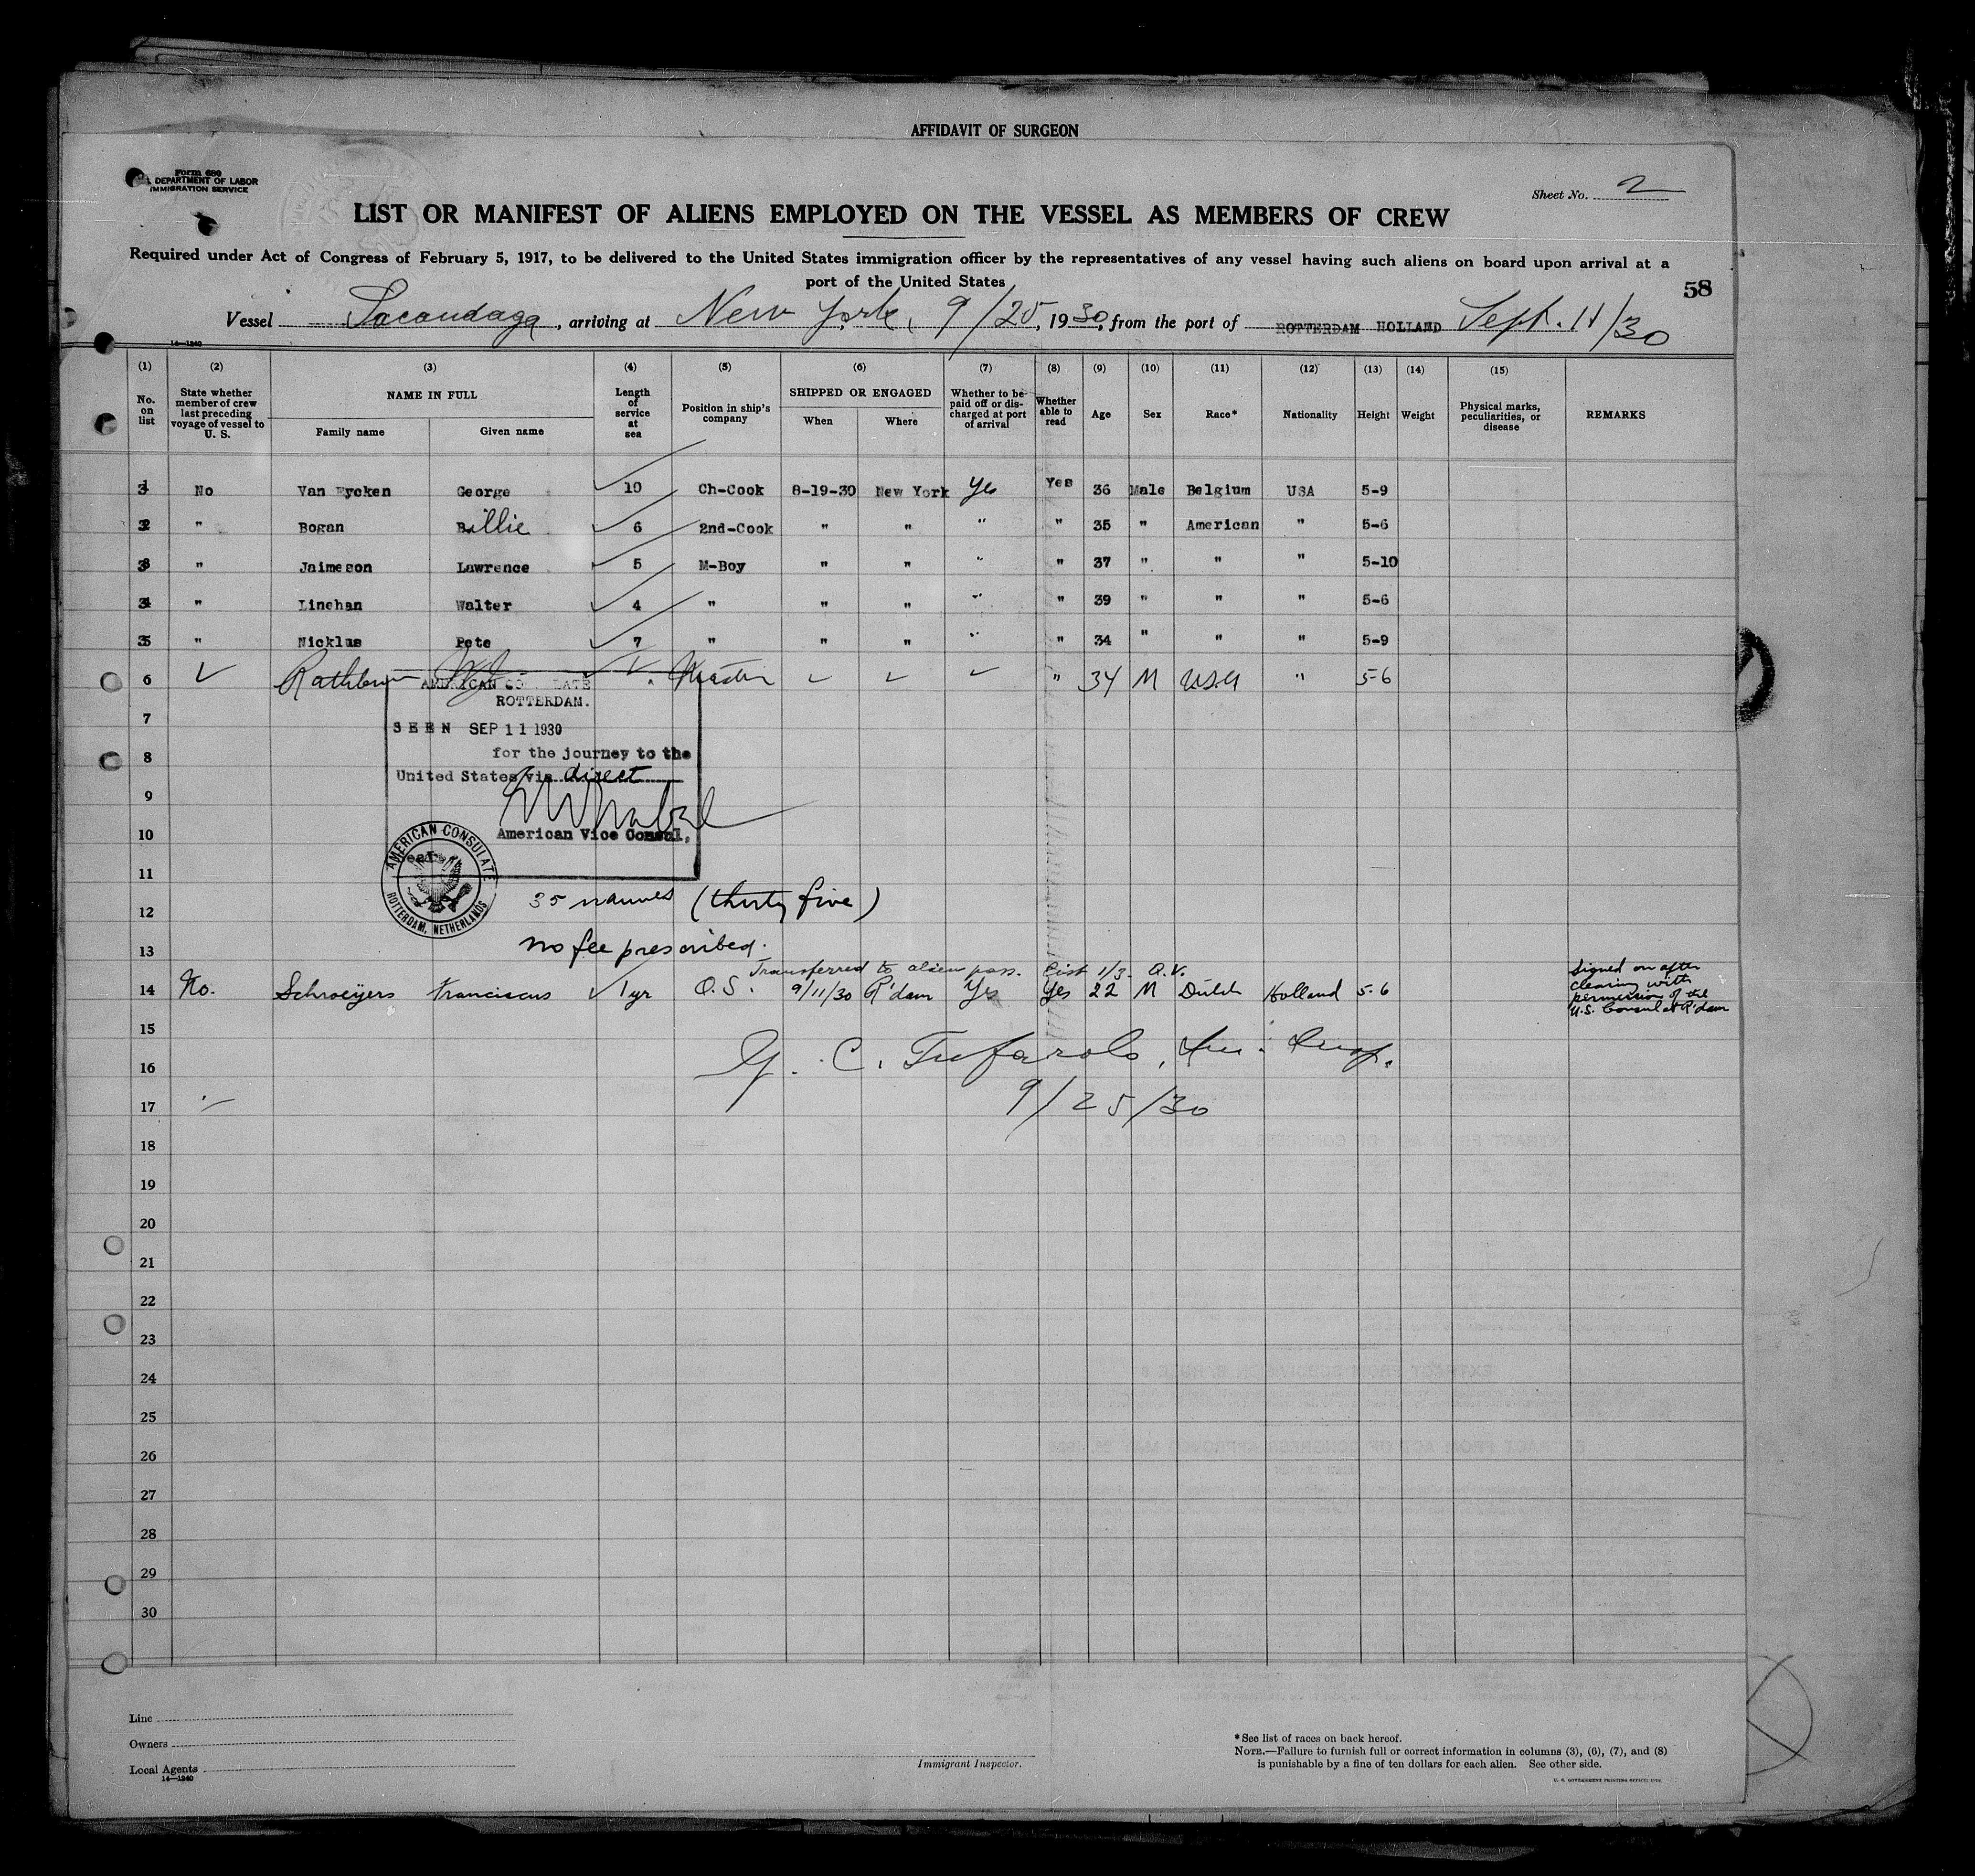 AFFIDAVIT OF SURGEON
Form 680
U. S. DEPARTMENT OF LABOR
IMMIGRATION SERVICE
Sheet No. 2
LIST OR MANIFEST OF ALIENS EMPLOYED ON THE VESSEL AS MEMBERS OF CREW
Required under Act of Congress of February 5, 1917, to be delivered to the United States immigration officer by the representatives of any vessel having such aliens on board upon arrival at a
port of the United States
58
Vessel Sacandaga, arriving at New York, 9/25, 1930, from the port of ROTTERDAM HOLLAND Sept. 11/30
14—1240
(1) (2) (3) (4) (5) (6) (7) (8) (9) (10) (11) (12) (13) (14) (15)
No. on list State whether member of crew last preceding voyage of vessel to U. S. NAME IN FULL Family name Given name Length of service at sea Position in ship's company SHIPPED OR ENGAGED When Where Whether to be paid off or discharged at port of arrival Whether able to read Age Sex Race* Nationality Height Weight Physical marks, peculiarities, or disease REMARKS
31 No Van Eycken George 10 Ch-Cook 8-19-30 New York Yes Yes 36 Male Belgium USA 5-9
32 " Bogan Billie 6 2nd-Cook " " " " 35 " American " 5-6
33 " Jaimeson Lawrence 5 M-Boy " " " " 37 " " " 5-10
34 " Linehan Walter 4 " " " " " 39 " " " 5-6
35 " Nicklus Pete 7 " " " " " 34 " " " 5-9
6 ✓ Rathbun Master ✓ ✓ ✓ " 34 M USA " 5-6
AMERICAN CONSULATE
ROTTERDAM.
7
SEEN SEP 11 1930
8
for the journey to the
United States via direct
9
10
American Vice Consul,
AMERICAN CONSULATE
ROTTERDAM, NETHERLANDS
11
35 names (thirty five)
12
no fee prescribed.
13
Transferred to alien pass. List 1/3. Q.V.
14 No. Schroeijers Franciscus ✓ 1 yr O.S. 9/11/30 R'dam Yes Yes 22 M Dutch Holland 5-6 Signed on after
clearing with
permission of the
U.S. Consul at R'dam
15
G. C. Tufarolo, Im. Insp.
16
9/25/30
17
18
19
20
21
22
23
24
25
26
27
28
29
30
Line
Owners
Local Agents
14—1240
Immigrant Inspector.
*See list of races on back hereof.
NOTE.—Failure to furnish full or correct information in columns (3), (6), (7), and (8)
is punishable by a fine of ten dollars for each alien. See other side.
U. S. GOVERNMENT PRINTING OFFICE: 1929